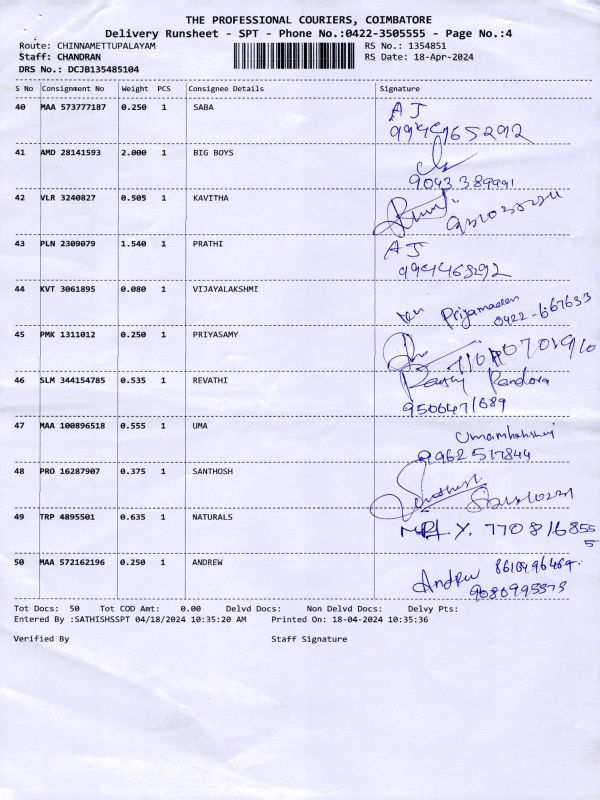 THE PROFESSIONAL COURIERS, COIMBATORE
Delivery Runsheet - SPT - Phone No.:0422-3505555 - Page No.:4
Route: CHINNAMETTUPALAYAM RS No.: 1354851
Staff: CHANDRAN RS Date: 18-Apr-2024
DRS No.: DCJB135485104
S No Consignment No Weight PCS Consignee Details Signature
40 MAA 573777187 0.250 1 SABA AJ
41 AMD 28141593 2.000 1 BIG BOYS
9043389991
42 VLR 3240827 0.505 1 KAVITHA
43 PLN 2309079 1.540 1 PRATHI AJ
44 KVT 3061895 0.080 1 VIJAYALAKSHMI
0422-667633
45 PMK 1311012 0.250 1 PRIYASAMY
46 SLM 344154785 0.535 1 REVATHI
9506471689
47 MAA 100896518 0.555 1 UMA
9962517844
48 PRO 16287907 0.375 1 SANTHOSH
49 TRP 4895501 0.635 1 NATURALS
50 MAA 572162196 0.250 1 ANDREW Andrew
Tot Docs: 50 Tot COD Amt: 0.00 Delvd Docs: Non Delvd Docs: Delvy Pts:
Entered By :SATHISHSSPT 04/18/2024 10:35:20 AM Printed On: 18-04-2024 10:35:36
Verified By Staff Signature